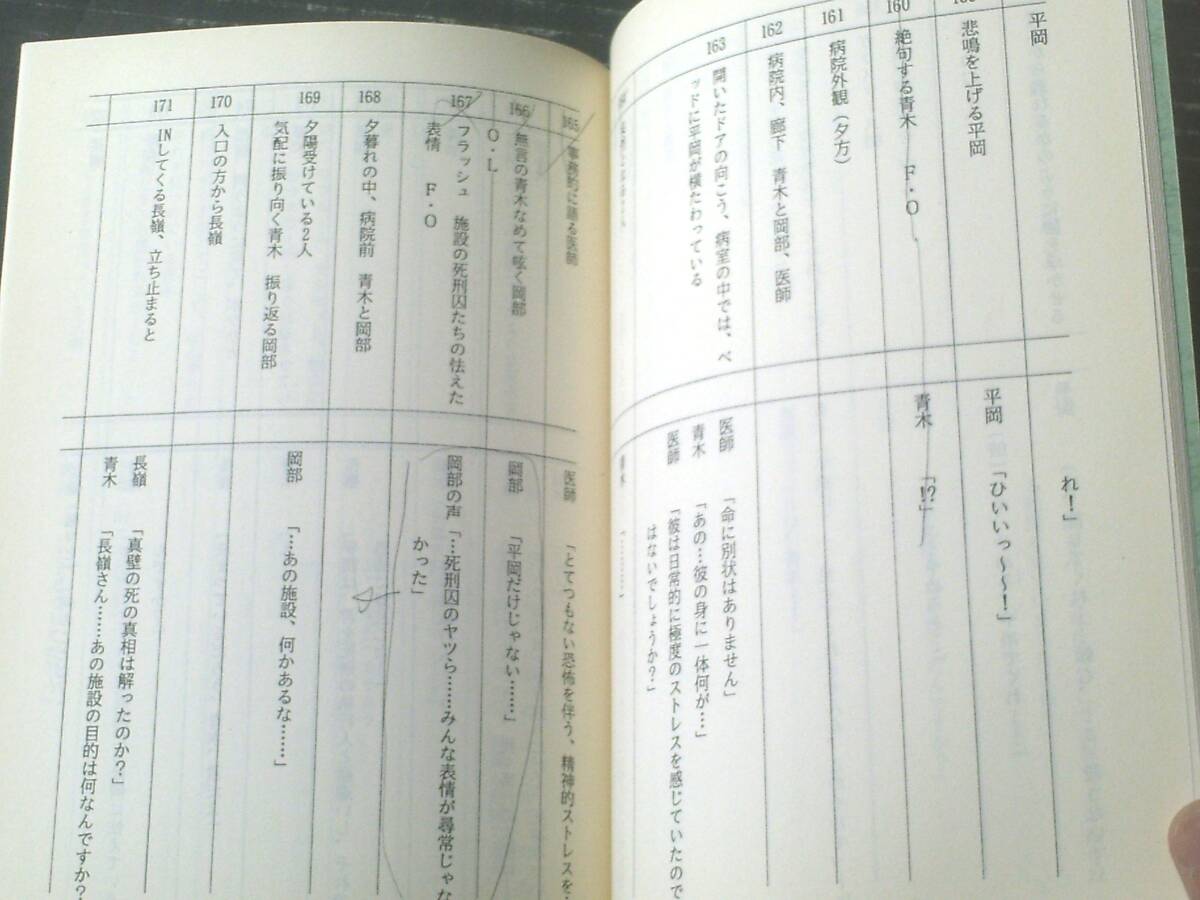 平岡
れ！」
悲鳴を上げる平岡
平岡
「ひいいっ～～！」
160
絶句する青木　F・O
青木
「!?」
161
病院外観（夕方）
162
病院内、廊下　青木と岡部、医師
163
開いたドアの向こう、病室の中では、ベ
ッドに平岡が横たわっている
医師
「命に別状はありません」
青木
「あの…彼の身に一体何が…」
医師
「彼は日常的に極度のストレスを感じていたので
はないでしょうか？」
「………」
165
事務的に語る医師
医師
「とてつもない恐怖を伴う、精神的ストレスを
166
無言の青木なめて呟く岡部
O・L
岡部
「平岡だけじゃない……」
167
フラッシュ　施設の死刑囚たちの怯えた
表情　F・O
岡部の声
「…死刑囚のヤツら……みんな表情が尋常じゃな
かった」
168
夕暮れの中、病院前　青木と岡部
169
夕陽受けている2人
気配に振り向く青木　振り返る岡部
岡部
「…あの施設、何かあるな……」
170
入口の方から長嶺
171
INしてくる長嶺、立ち止まると
長嶺
「真壁の死の真相は解ったのか？」
青木
「長嶺さん……あの施設の目的は何なんですか？